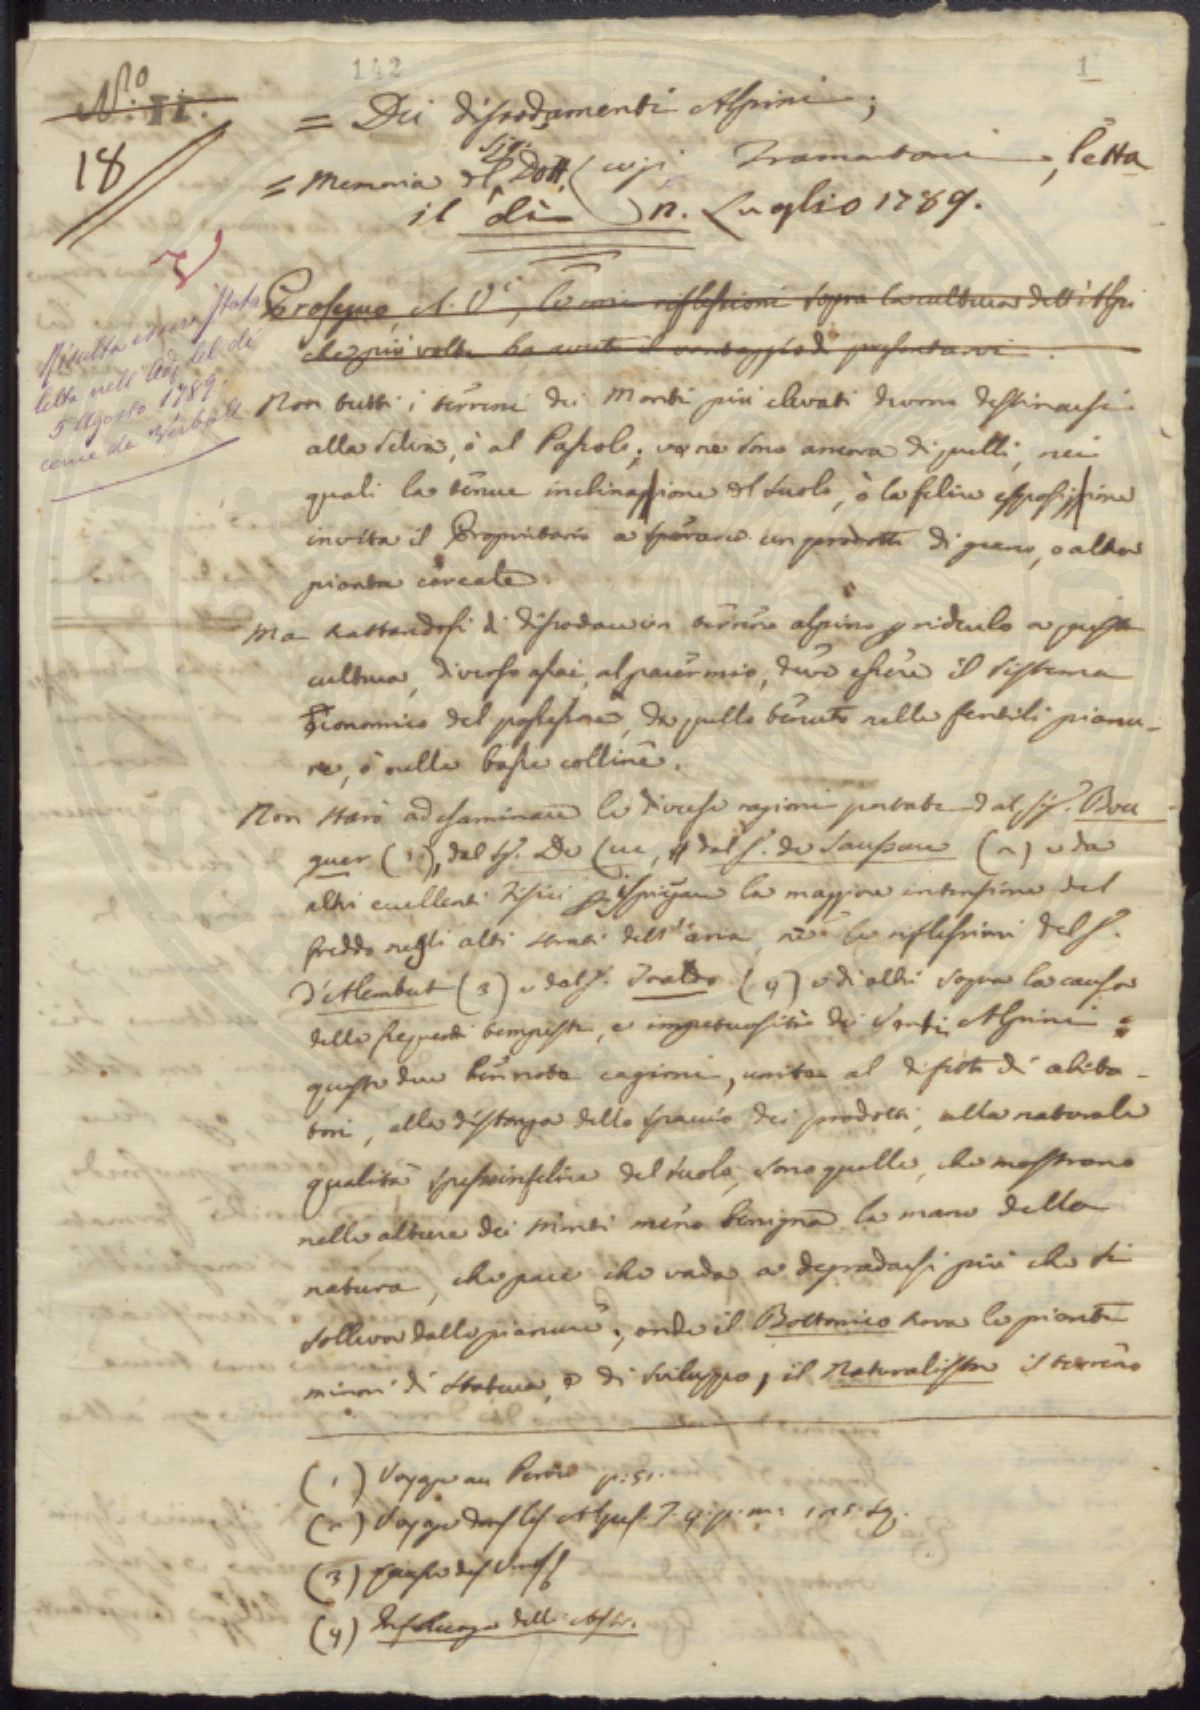 142
1
N.º II.
18
= Dei disodamenti Alpini;
= Memoria del Sig. Dott. Luigi Tramontani, letta
il dì ) 2. Luglio 1789.
Risulta essere stata
letta nell'Ad. del dì
5 Agosto 1789.
come da Verbale
Proseguo, A. V.i, le mie riflessioni sopra la cultura dell'Alpi
che più volte ho avuto il vantaggio di presentarvi.
Non tutti i terreni dei Monti più elevati devono destinarsi
alla Selva, ò al Pascolo; ve ne sono ancora di quelli, nei
quali la tenue inclinazione del suolo, ò la felice esposizione
invita il Proprietario a sperare un prodotto di grano, o altra
pianta cereale.
Ma trattandosi di disodare un terreno alpino p ridurlo a questa
cultura, diverso assai, al parer mio, deve essere il sistema
Economico del possessore, da quello tenuto nelle fertili pianu-
re, ò nelle basse colline.
Non starò ad esaminare le diverse ragioni portate dal Sig. Bou-
guer (1), dal Sig. De Luc, dal S. de Saussure (2) e da
altri eccellenti Fisici p ispiegare la maggiore intensione del
freddo negli alti strati dell'aria, nè le riflessioni del S.
d'Alembert (3) e dal S. Toaldo (4) e di altri sopra la causa
delle frequenti tempeste, e impetuosità dei Venti Alpini:
queste due ben note cagioni, unite al difetto di abita-
tori, alla distanza dello spaccio dei prodotti, alla naturale
qualità spesso infelice del suolo, sono quelle, che mostrano
nelle alture dei Monti meno benigna la mano della
natura, che pare che vada a degradarsi più che si
solleva dalle pianure; onde il Bottanico trova le piante
minori di statura, e di sviluppo; il Naturalista il terreno
(1) Voyage au Perou p. 51.
(2) Voyage dans les Alpes. T. 4. p. m.
(3) cause des Vents
(4) dell' Astr.